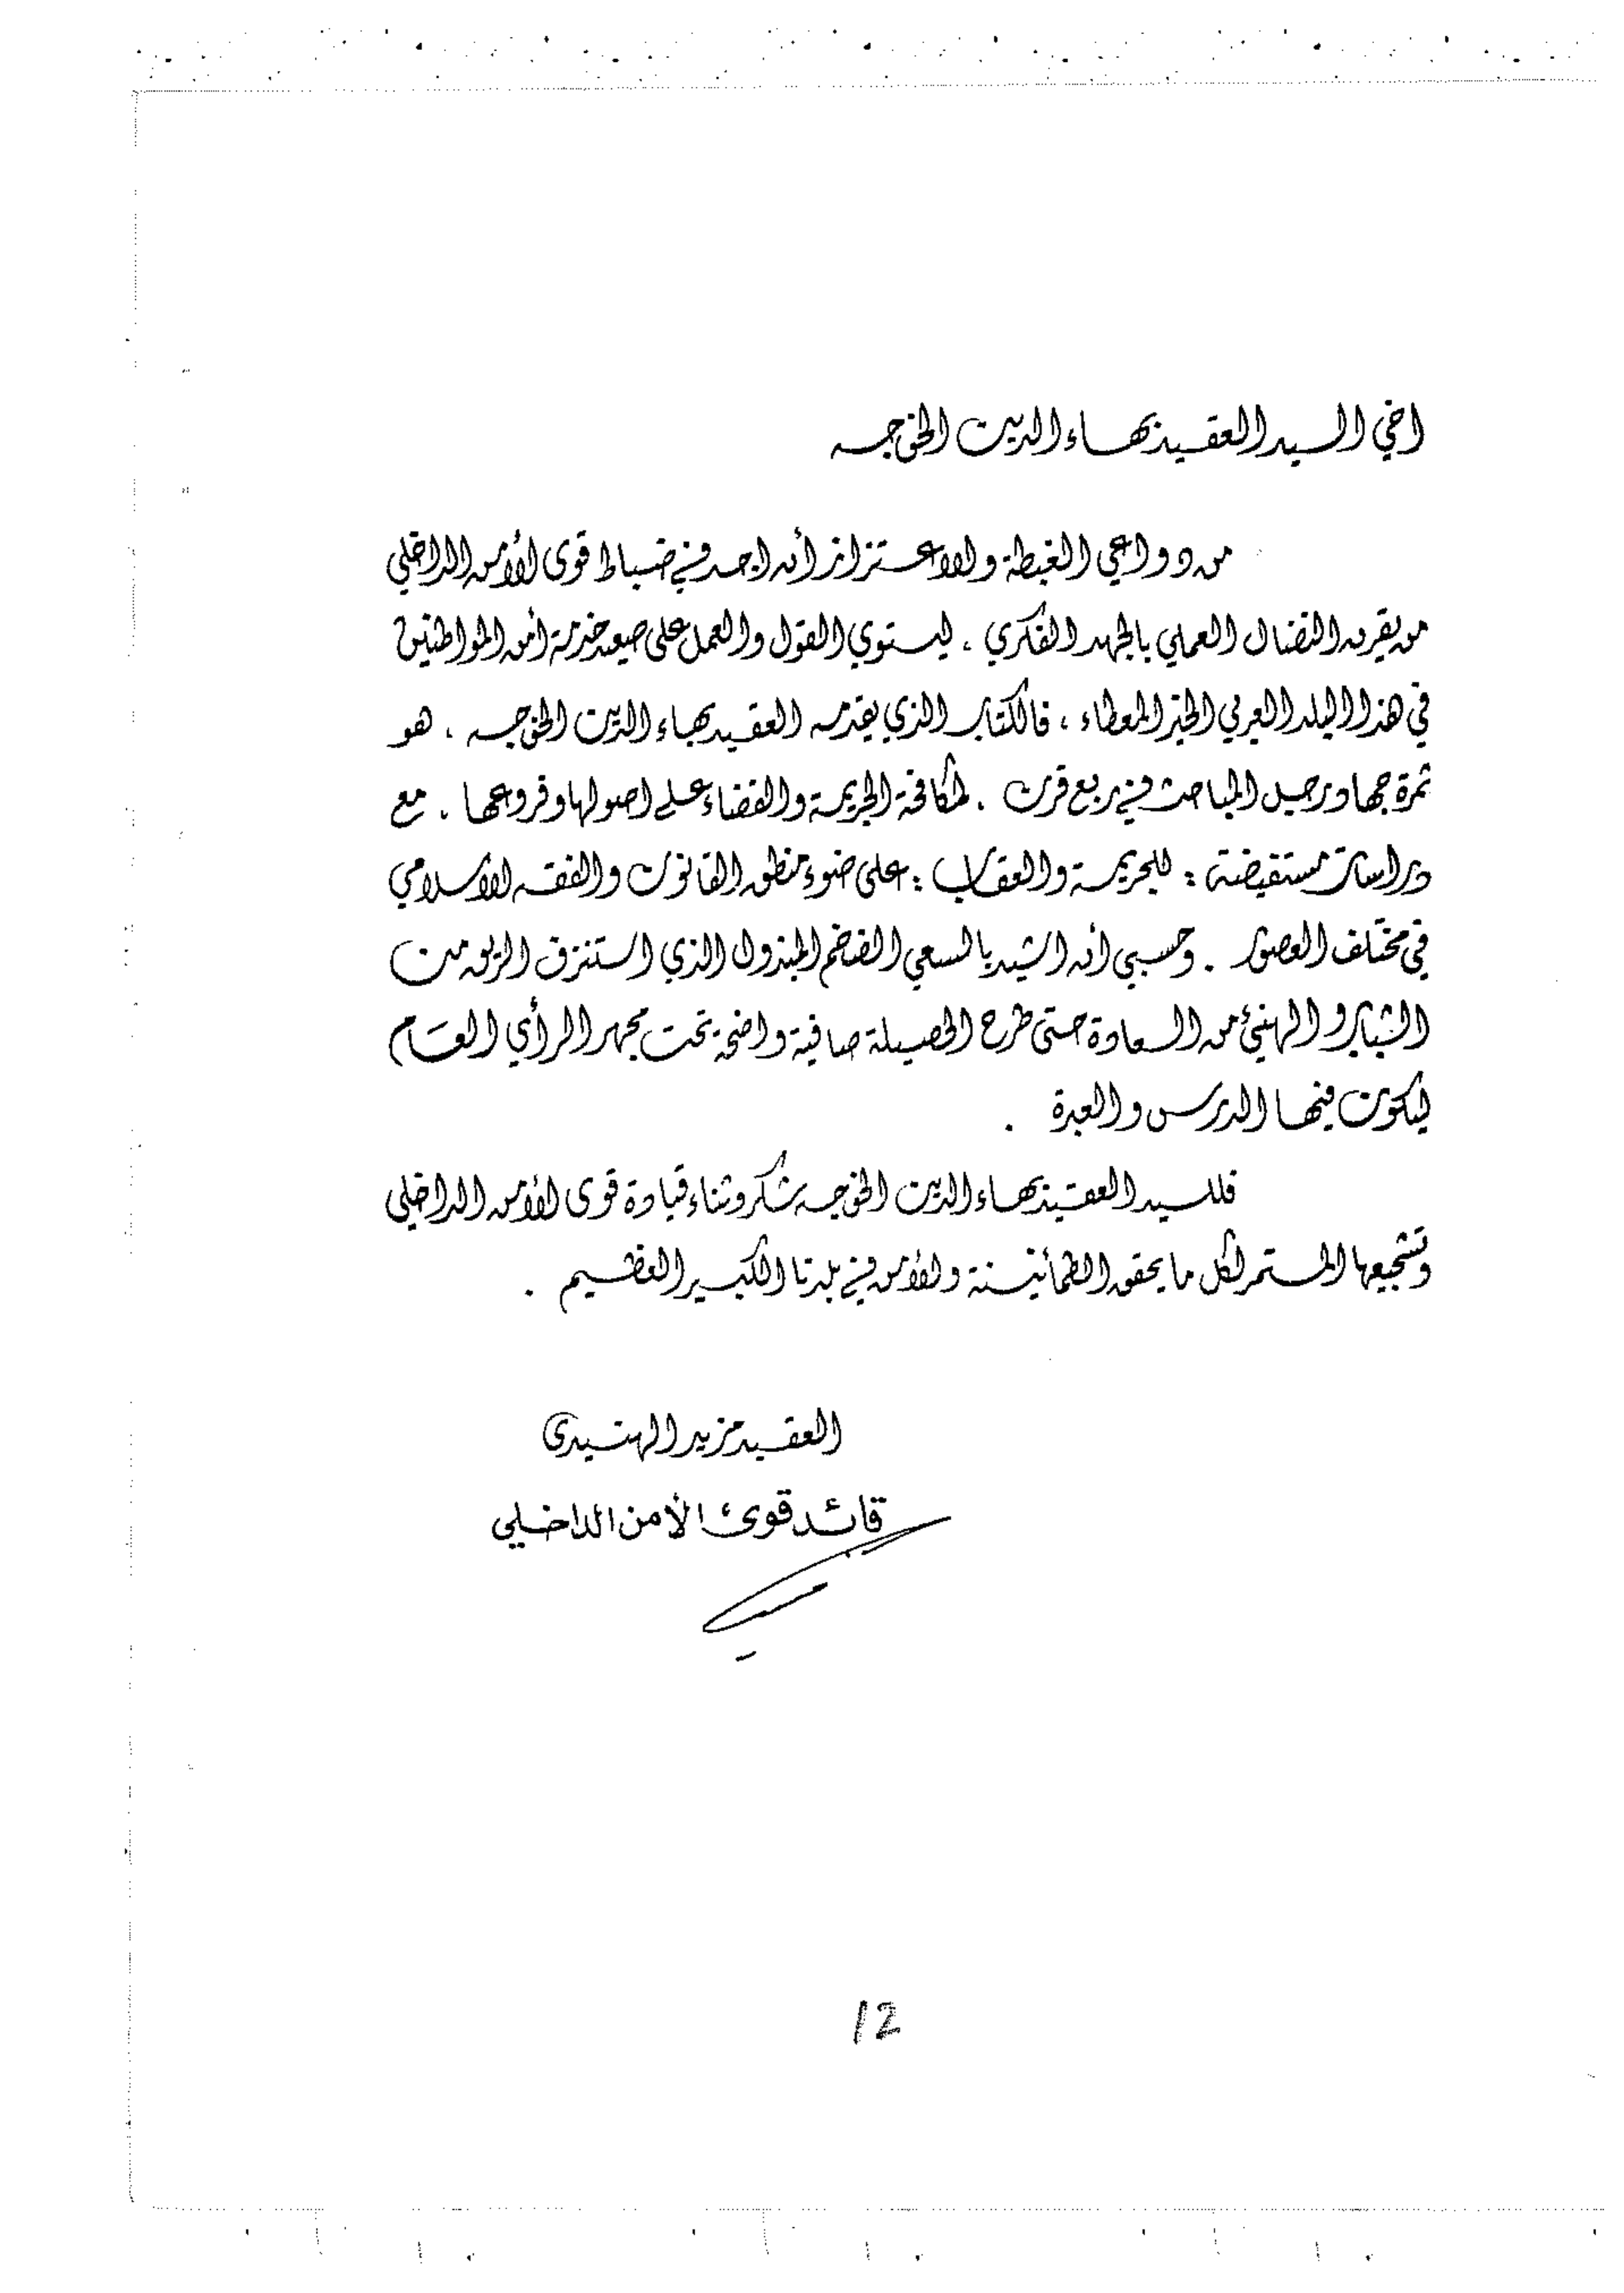 اخي السيد العقيد بهاء الدين الخوجه
من دواعي الغبطة والاعتزاز أن اجد في ضباط قوى الأمن الداخلي
من يقرن النضال العملي بالجهد الفكري ، ليستوي القول والعمل على صعيد خدمة أمن المواطنين
في هذا البلد العربي الخير المعطاء ، فالكتاب الذي يقدمه العقيد بهاء الدين الخوجه ، هو
ثمرة جهاد رجيل المباحث في ربع قرن . لمكافحة الجريمة والقضاء على اصولها وفروعها . مع
دراسات مستفيضة : للجريمة والعقاب : على ضوء منطق القانون والفقه الاسلامي
في مختلف العصور . وحسبي أن اشيد بالسعي الضخم المبذول الذي استنزف الريق من
الشباب والهنيئ من السعادة حتى طرح الحصيلة صافية واضحة تحت مجهر الرأي العام
ليكون فيها الدرس والعبرة .
فللسيد العقيد بهاء الدين الخوجه شكر وثناء قيادة قوى الأمن الداخلي
وتشجيعها المستمر لكل ما يحقق الطمأنينة والأمن في بلدنا الكبير العظيم .
العقيد مزيد الهنيدى
قائد قوى الأمن الداخلي
12